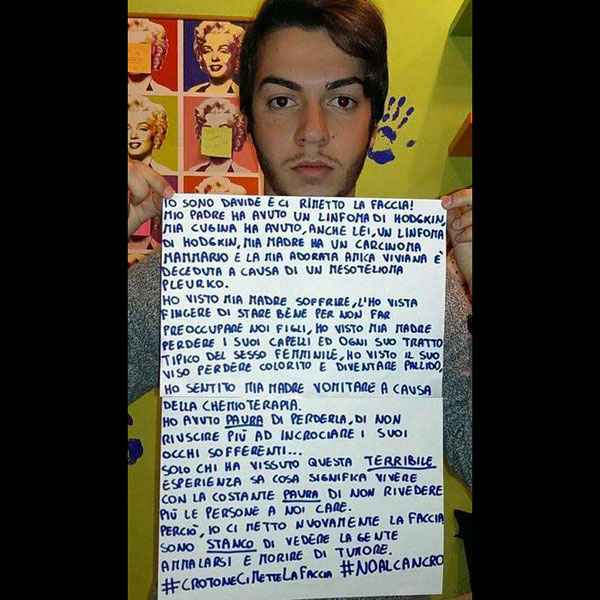 IO SONO DAVIDE E CI RIMETTO LA FACCIA!
MIO PADRE HA AVUTO UN LINFOMA DI HODGKIN,
MIA CUGINA HA AVUTO, ANCHE LEI, UN LINFOMA
DI HODGKIN, MIA MADRE HA UN CARCINOMA
MAMMARIO E LA MIA ADORATA AMICA VIVIANA È
DECEDUTA A CAUSA DI UN MESOTELIOMA
PLEURICO.
HO VISTO MIA MADRE SOFFRIRE, L'HO VISTA
FINGERE DI STARE BENE PER NON FAR
PREOCCUPARE NOI FIGLI, HO VISTO MIA MADRE
PERDERE I SUOI CAPELLI ED OGNI SUO TRATTO
TIPICO DEL SESSO FEMMINILE, HO VISTO IL SUO
VISO PERDERE COLORITO E DIVENTARE PALLIDO,
HO SENTITO MIA MADRE VOMITARE A CAUSA
DELLA CHEMIOTERAPIA.
HO AVUTO PAURA DI PERDERLA, DI NON
RIUSCIRE PIÙ AD INCROCIARE I SUOI
OCCHI SOFFERENTI...
SOLO CHI HA VISSUTO QUESTA TERRIBILE
ESPERIENZA SA COSA SIGNIFICA VIVERE
CON LA COSTANTE PAURA DI NON RIVEDERE
PIÙ LE PERSONE A NOI CARE.
PERCIÒ, IO CI METTO NUOVAMENTE LA FACCIA
SONO STANCO DI VEDERE LA GENTE
AMMALARSI E MORIRE DI TUMORE.
#CROTONECIMETTELAFACCIA #NOALCANCRO